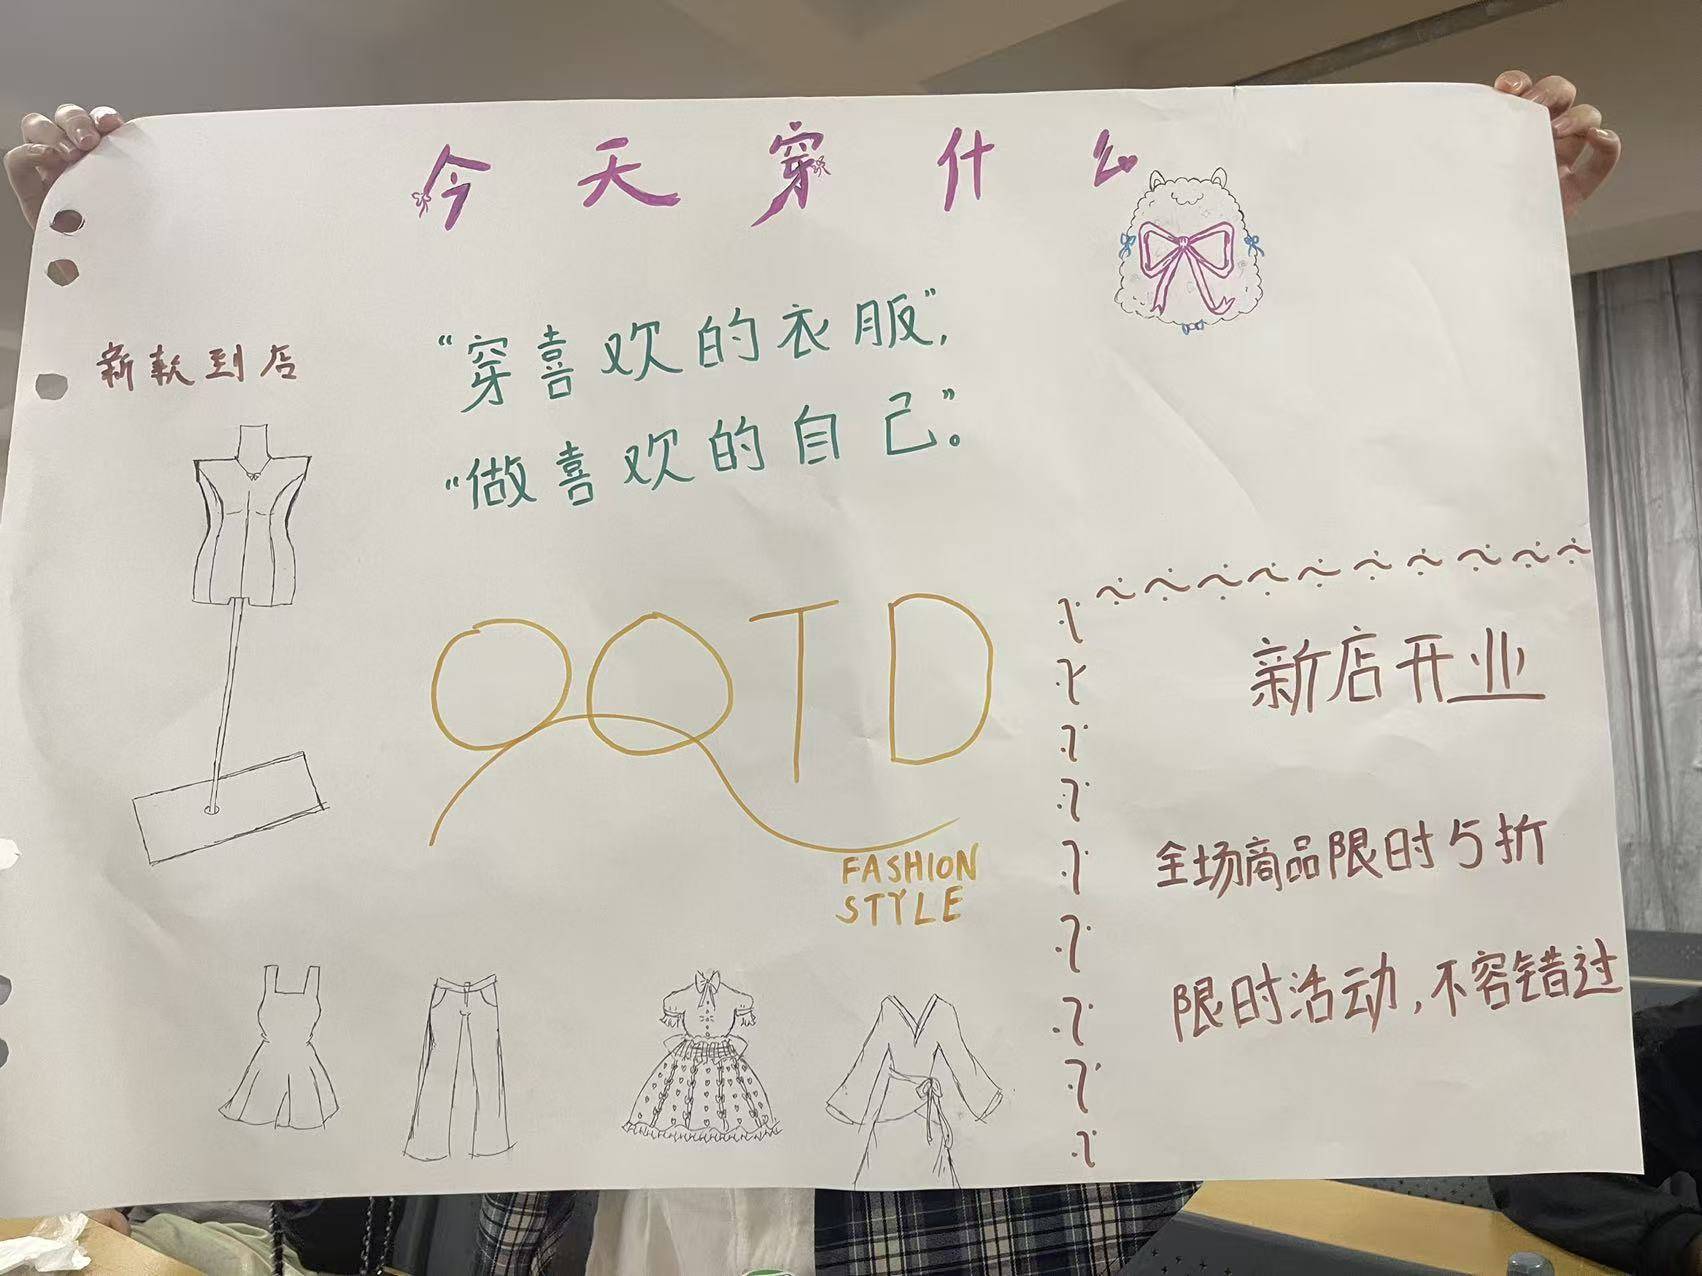 今天穿什么
“穿喜欢的衣服”,
“做喜欢的自己”。
新款到店
OOTD
FASHION
STYLE
新店开业
全场商品限时5折
限时活动,不容错过